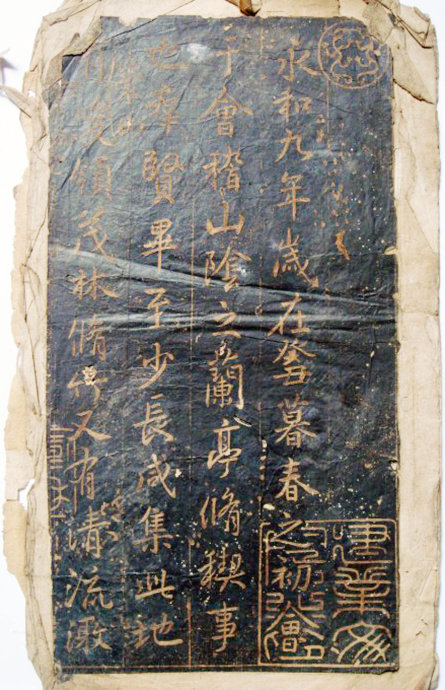 永和九年歲在癸丑暮春之初會
于會稽山陰之蘭亭脩禊事
也羣賢畢至少長咸集此地
峻領茂林脩竹又有清流激